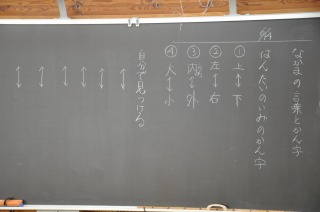 なかまの言葉とかん字
はんたいのいみのかん字
①上↔下
②左↔右
③内↔外
④大↔小
自分で見つける